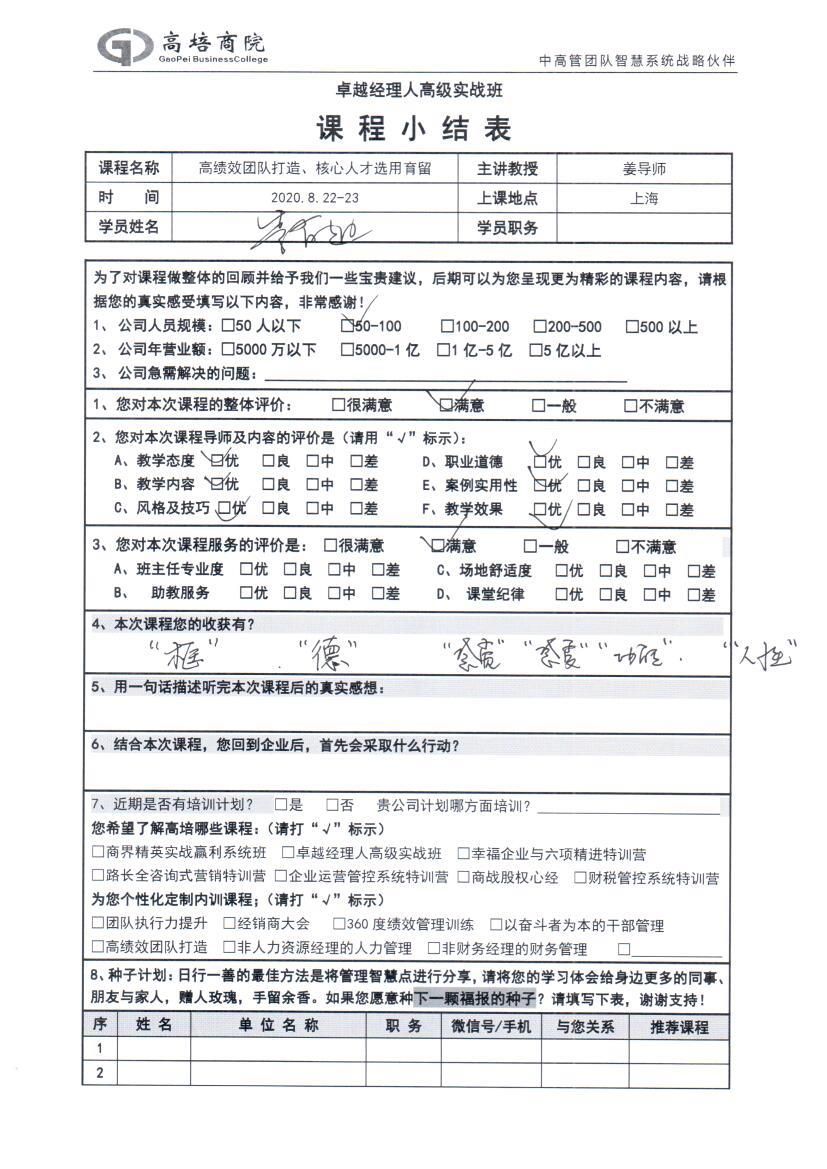 高培商院
GaoPei BusinessCollege
中高管团队智慧系统战略伙伴
卓越经理人高级实战班
课程小结表
课程名称 高绩效团队打造、核心人才选用育留 主讲教授 姜导师
时 间 2020.8.22-23 上课地点 上海
学员姓名 学员职务
为了对课程做整体的回顾并给予我们一些宝贵建议，后期可以为您呈现更为精彩的课程内容，请根
据您的真实感受填写以下内容，非常感谢！
1、 公司人员规模：□50 人以下 □50-100 □100-200 □200-500 □500 以上
2、 公司年营业额：□5000 万以下 □5000-1 亿 □1 亿-5 亿 □5 亿以上
3、 公司急需解决的问题：
1、您对本次课程的整体评价： □很满意 □满意 □一般 □不满意
2、您对本次课程导师及内容的评价是（请用“√”标示）：
A、教学态度 □优 □良 □中 □差 D、职业道德 □优 □良 □中 □差
B、教学内容 □优 □良 □中 □差 E、案例实用性 □优 □良 □中 □差
C、风格及技巧 □优 □良 □中 □差 F、教学效果 □优 □良 □中 □差
3、您对本次课程服务的评价是： □很满意 □满意 □一般 □不满意
A、班主任专业度 □优 □良 □中 □差 C、场地舒适度 □优 □良 □中 □差
B、 助教服务 □优 □良 □中 □差 D、 课堂纪律 □优 □良 □中 □差
4、本次课程您的收获有？
“框” “德”
5、用一句话描述听完本次课程后的真实感想：
6、结合本次课程，您回到企业后，首先会采取什么行动？
7、近期是否有培训计划？ □是 □否 贵公司计划哪方面培训？
您希望了解高培哪些课程：（请打“√”标示）
□商界精英实战赢利系统班 □卓越经理人高级实战班 □幸福企业与六项精进特训营
□路长全咨询式营销特训营 □企业运营管控系统特训营 □商战股权心经 □财税管控系统特训营
为您个性化定制内训课程；（请打“√”标示）
□团队执行力提升 □经销商大会 □360 度绩效管理训练 □以奋斗者为本的干部管理
□高绩效团队打造 □非人力资源经理的人力管理 □非财务经理的财务管理 □
8、种子计划：日行一善的最佳方法是将管理智慧点进行分享，请将您的学习体会给身边更多的同事、
朋友与家人，赠人玫瑰，手留余香。如果您愿意种下一颗福报的种子？请填写下表，谢谢支持！
序 姓 名 单 位 名 称 职 务 微信号/手机 与您关系 推荐课程
1
2